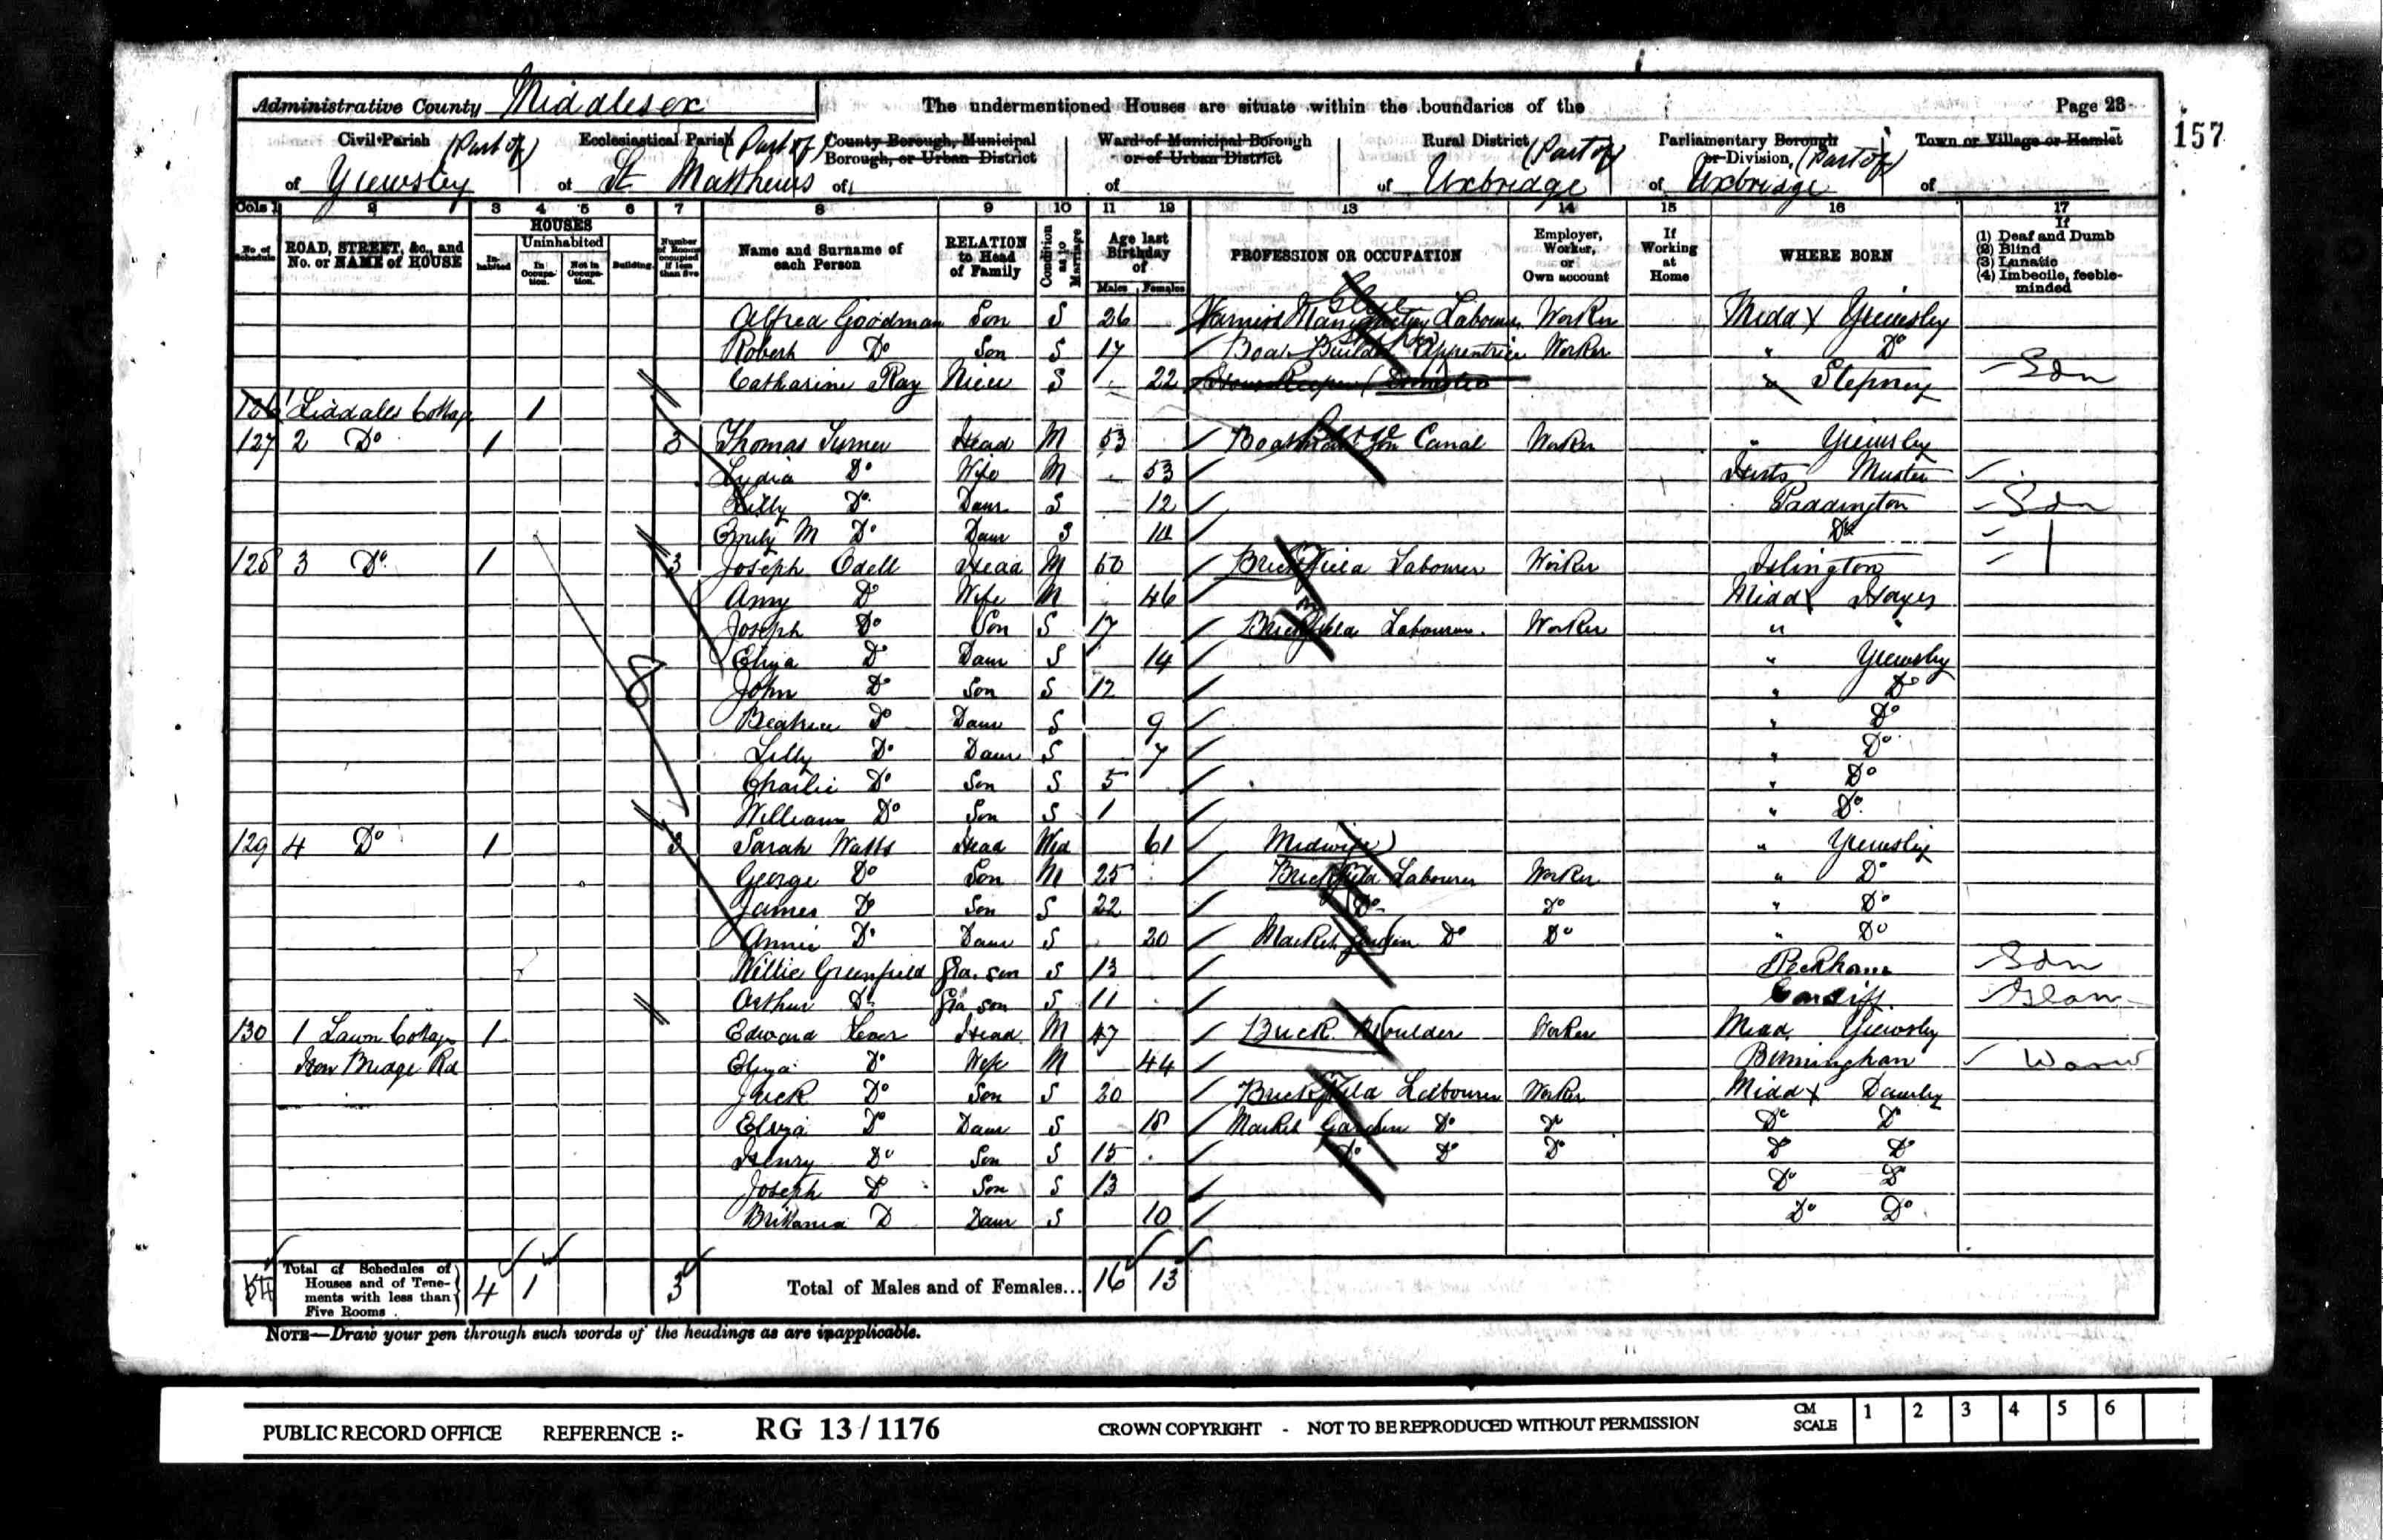 Administrative County Middlesex The undermentioned Houses are situate within the boundaries of the Page 23
157
Civil Parish (Part of) Ecclesiastical Parish (Part of) County Borough, Municipal Borough, or Urban District Ward of Municipal Borough or of Urban District Rural District (Part of) Parliamentary Borough or Division, (Part of) Town or Village or Hamlet
of Yiewsley of St Matthews of of of Uxbridge of Uxbridge of
Cols 1 2 3 4 5 6 7 8 9 10 11 12 13 14 15 16 17
No of Schedule ROAD, STREET, &c., and No. or NAME of HOUSE HOUSES Inhabited Uninhabited In Occupation. Not in Occupation. Building. Number of Rooms occupied if less than five Name and Surname of each Person RELATION to Head of Family Condition as to Marriage Age last Birthday of Males Females PROFESSION OR OCCUPATION Employer, Worker, or Own account If Working at Home WHERE BORN If (1) Deaf and Dumb (2) Blind (3) Lunatic (4) Imbecile, feeble-minded
Alfred Goodman Son S 26 Labourer Worker Middx Yiewsley
Robert Do Son S 17 Boat Builder Apprentice Worker " Do
Catharine Ray Niece S 22 " Stepney Ldn
126 1 Liddales Cottage 1
127 2 Do 1 3 Thomas Turner Head M 53 Boatman on Canal Worker " Yiewsley
Lydia Do Wife M 53 Herts
Lilly Do Daur S 12 Paddington Ldn
Emily M Do Daur S Do
128 3 Do 1 3 Joseph Odell Head M 50 Brickfield Labourer Worker Islington
Amy Do Wife M 46 Middx Hayes
Joseph Do Son S 17 Brickfield Labourer. Worker " "
Eliza Do Daur S 14 " Yiewsley
John Do Son S 12 " Do
Beatrice Do Daur S 9 " Do
Lilly Do Daur S 7 " Do
Charlie Do Son S 5 " Do
William Do Son S 1 " Do
129 4 Do 1 3 Sarah Watts Head Wid 61 Midwife " Yiewsley
George Do Son M 25 Brickfield Labourer Worker " Do
James Do Son S 22 Do Do " Do
Annie Do Daur S 20 Market Garden Do Do " Do
Willie Greenfield Gra. son S 13 Peckham Ldn
Arthur Do Gra son S 11 Cardiff Glam
130 1 Lawn Cottage 1 Edward Lever Head M 47 Brick Moulder Worker Midd. Yiewsley
Iron Bridge Rd Eliza Do Wife M 44 Birmingham Warw
Jack Do Son S 20 Brickfield Labourer Worker Middx Dawley
Eliza Do Daur S 18 Market Garden Do Do Do Do
Henry Do Son S 15 Do Do Do Do Do
Joseph Do Son S 13 Do Do
Brittania Do Daur S 10 Do Do
Total of Schedules of Houses and of Tenements with less than Five Rooms 4 1 3 Total of Males and of Females... 16 13
NOTE—Draw your pen through such words of the headings as are inapplicable.
PUBLIC RECORD OFFICE REFERENCE :- RG 13 / 1176 CROWN COPYRIGHT - NOT TO BE REPRODUCED WITHOUT PERMISSION CM SCALE 1 2 3 4 5 6